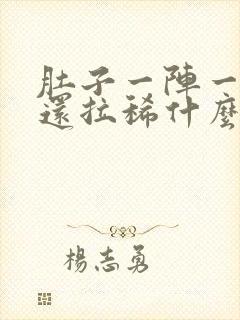 肚子一陣一
還拉稀什麼
楊志勇